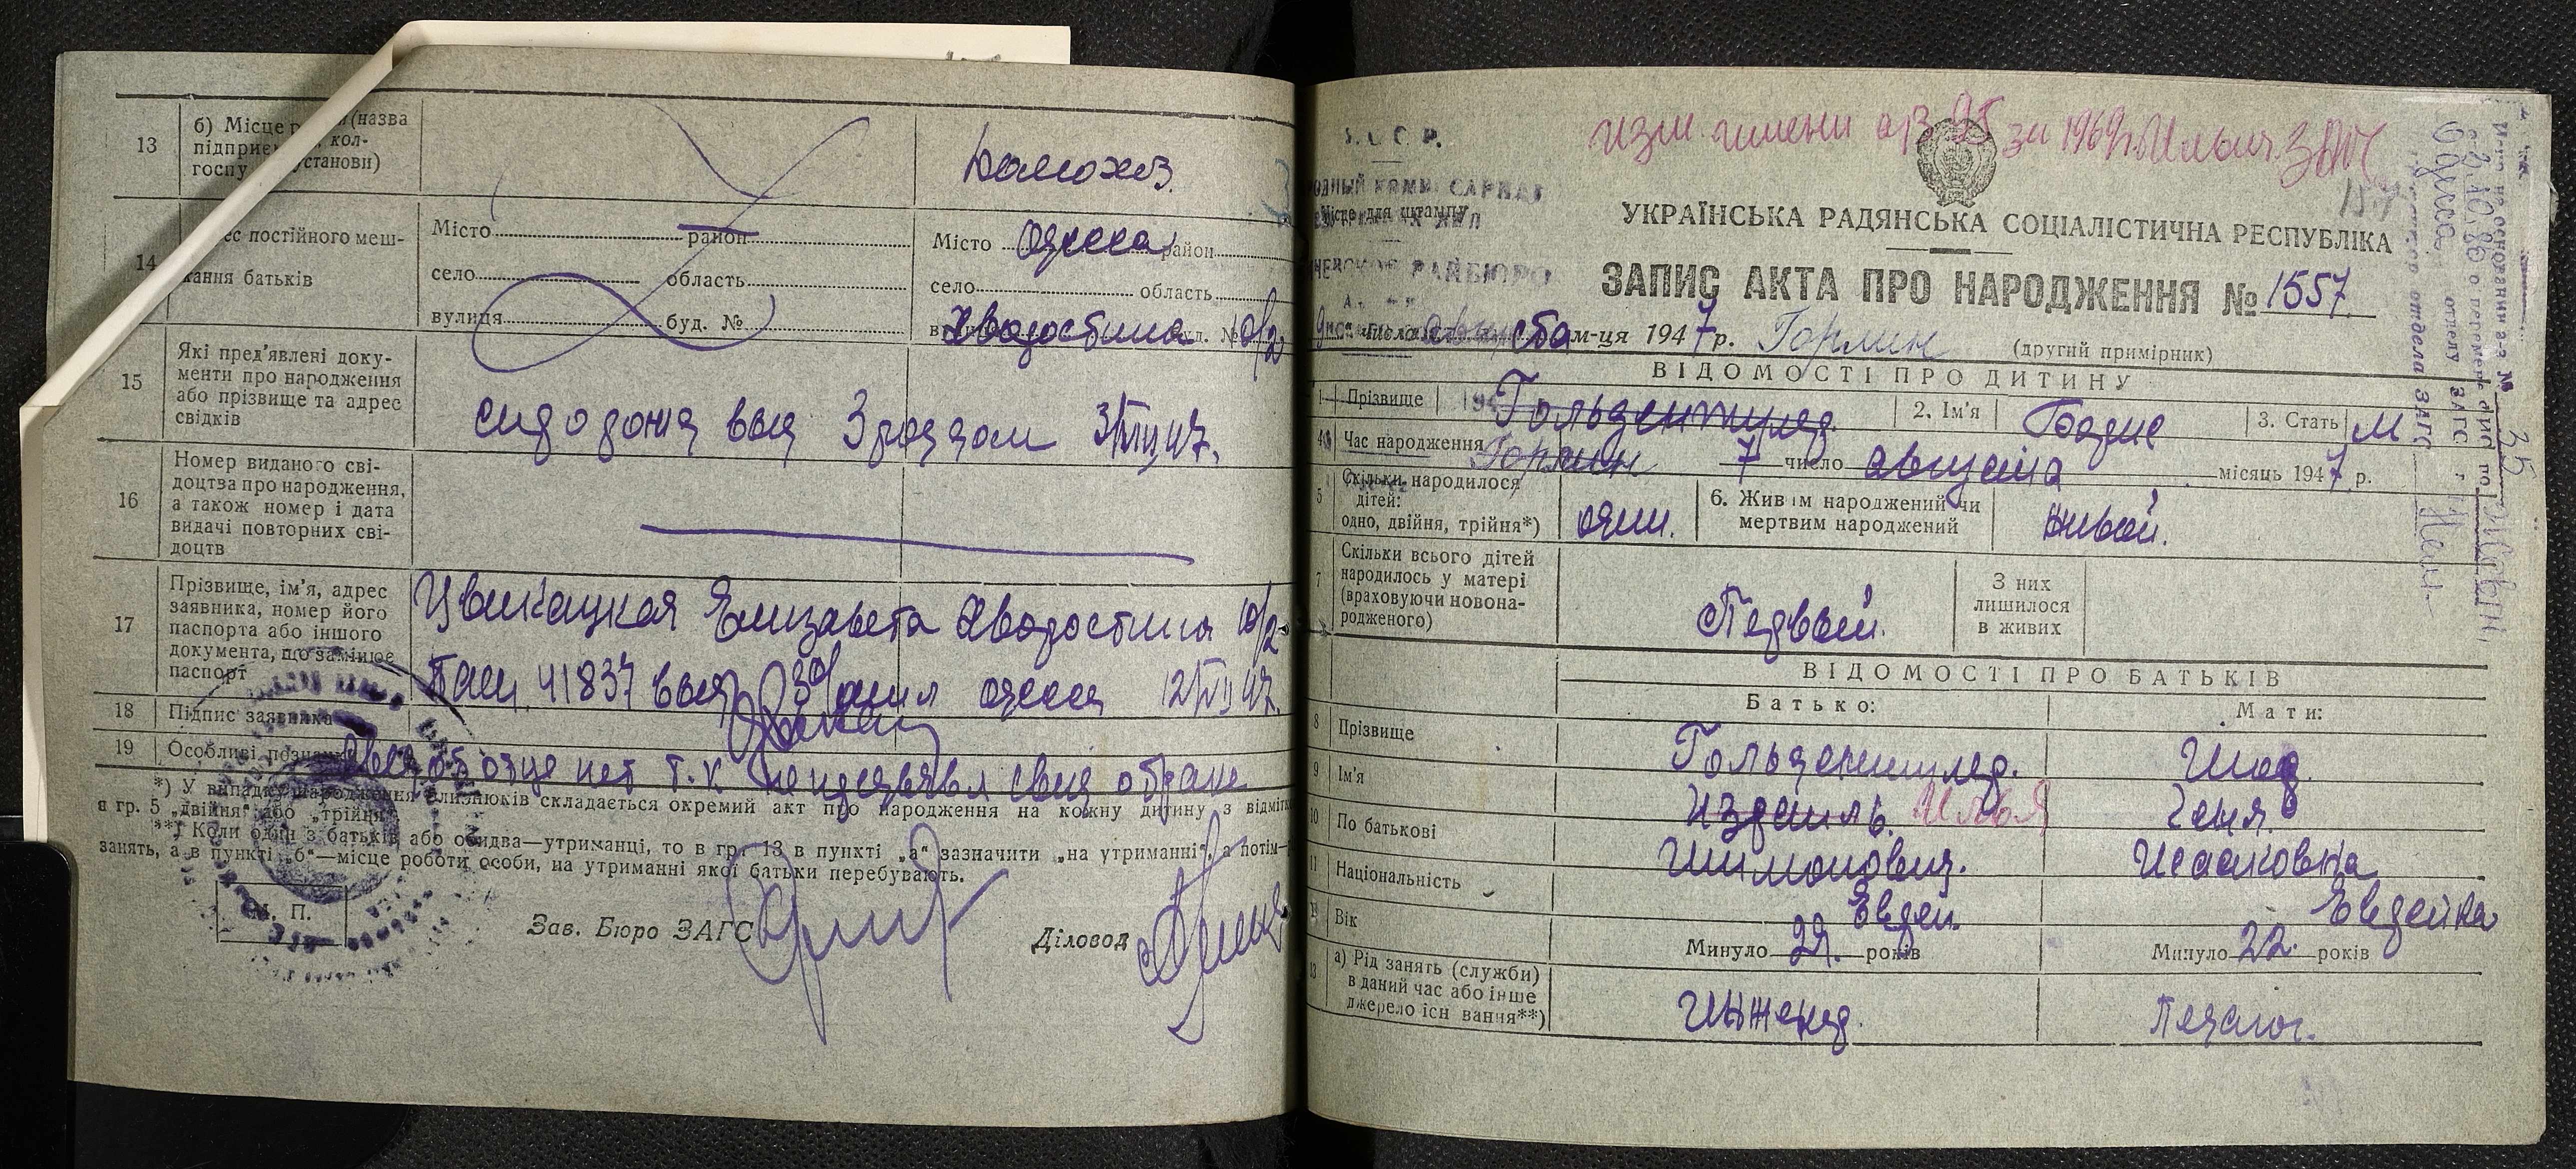 13
б) Місце роботи (назва
підприємства, кол-
госпу, установи)
14
Адрес постійного меш-
кання батьків
Місто район Місто Одесса район
село область село область
вулиця буд. № вулиця Хворостина буд. № 10/2
15
Які пред'явлені доку-
менти про народження
або прізвище та адрес
свідків
выд 3 роддом
16
Номер виданого сві-
доцтва про народження,
а також номер і дата
видачі повторних сві-
доцтв
17
Прізвище, ім'я, адрес
заявника, номер його
паспорта або іншого
документа, що замінює
паспорт
Елизавета Хворостина 10/2
Пасп. 41837 выд
18 Підпис заявника
19 Особливі познач
об отце нет т.к не предъявл свид о браке
*) У випадку народження близнюків складається окремий акт про народження на кожну дитину з відмітк
в гр. 5 „двійня“ або „трійня“.
**) Коли один з батьків або обидва—утриманці, то в гр. 13 в пункті „а“ зазначити „на утриманні“, а потім—
занять, а в пункті „б“—місце роботи особи, на утриманні якої батьки перебувають.
М. П.
Зав. Бюро ЗАГС
Діловод
изм. имени а/з 95 за 1969г. Илья. ЗАГС
Місце для штампу
УКРАЇНСЬКА РАДЯНСЬКА СОЦІАЛІСТИЧНА РЕСПУБЛІКА
ЗАПИС АКТА ПРО НАРОДЖЕННЯ № 1557
число августа м-ця 1947 р. Горлин (другий примірник)
ВІДОМОСТІ ПРО ДИТИНУ
1 Прізвище Гольденшулер 2. Ім'я Борис 3. Стать М
4 Час народження Горлин 7 число августа місяць 1947 р.
5
Скільки народилося
дітей:
одно, двійня, трійня*)
один.
6. Живим народжений чи
мертвим народжений
живой.
7
Скільки всього дітей
народилось у матері
(враховуючи новона-
родженого)
Первый.
З них
лишилося
в живих
ВІДОМОСТІ ПРО БАТЬКІВ
Батько: Мати:
8 Прізвище Гольденшулер. Шор.
9 Ім'я Израиль. Илья Геня.
10 По батькові Шимонович. Исааковна
11 Національність Еврей. Еврейка
12 Вік Минуло років Минуло 22. років
13
а) Рід занять (служби)
в даний час або інше
джерело існування**)
Инженер. Педагог.